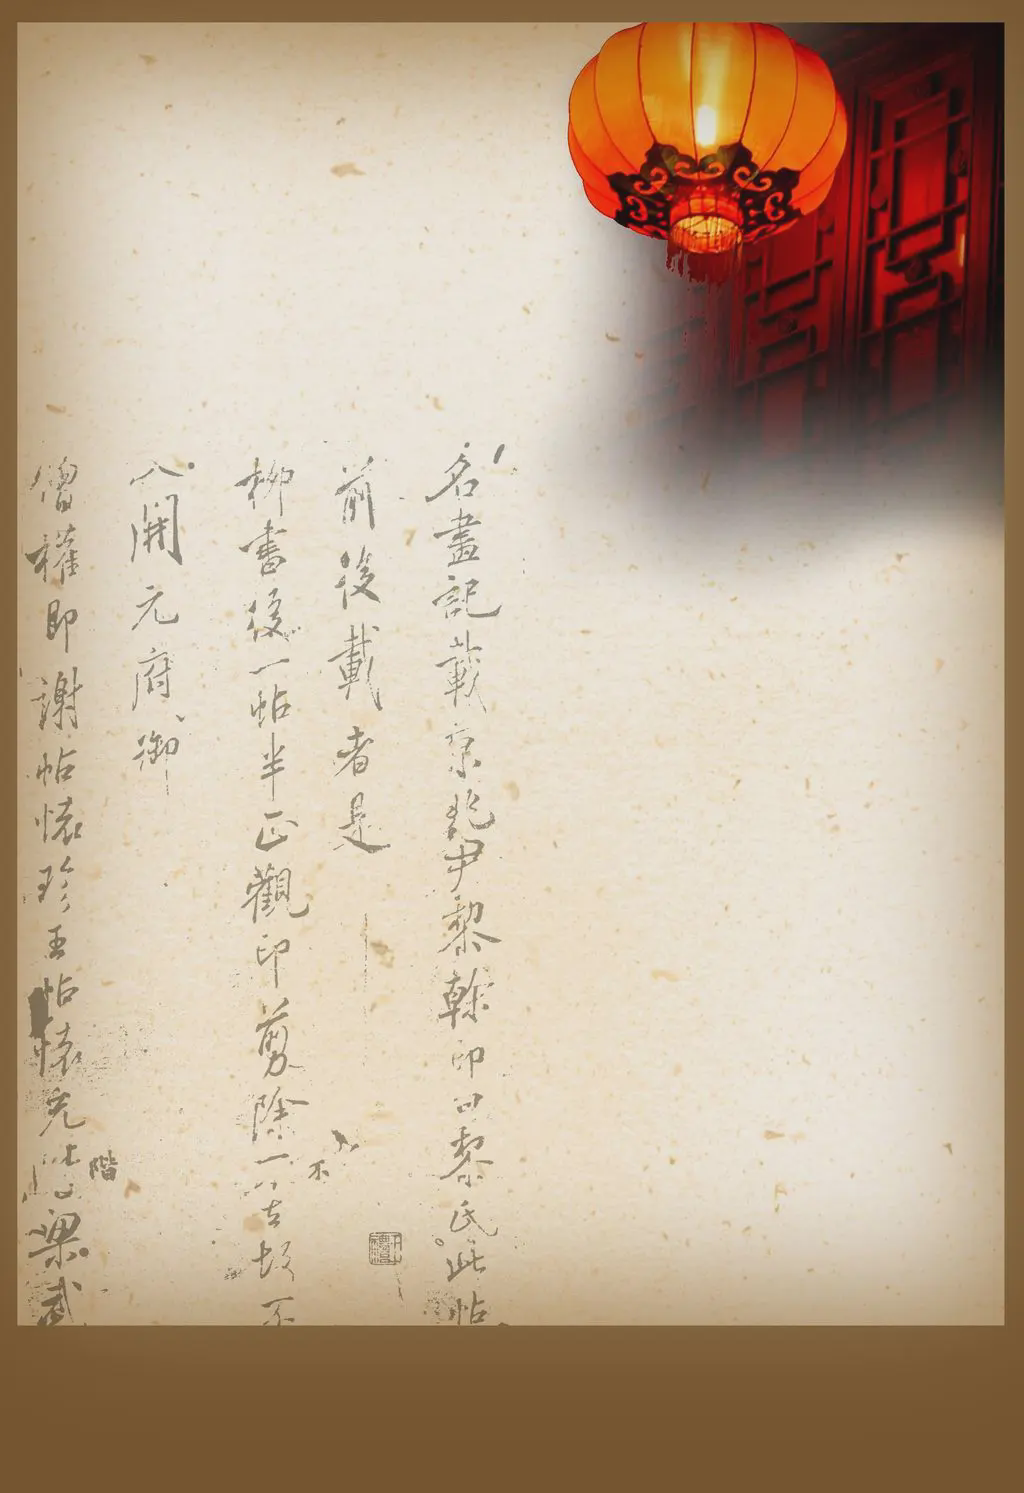 名畫記載京兆尹黎幹印曰黎氏此帖
前後載者是
不
柳書後一帖半正觀印剪除一古故不
八開元府御
階
僧權即謝帖懷珍王帖懷充梁武